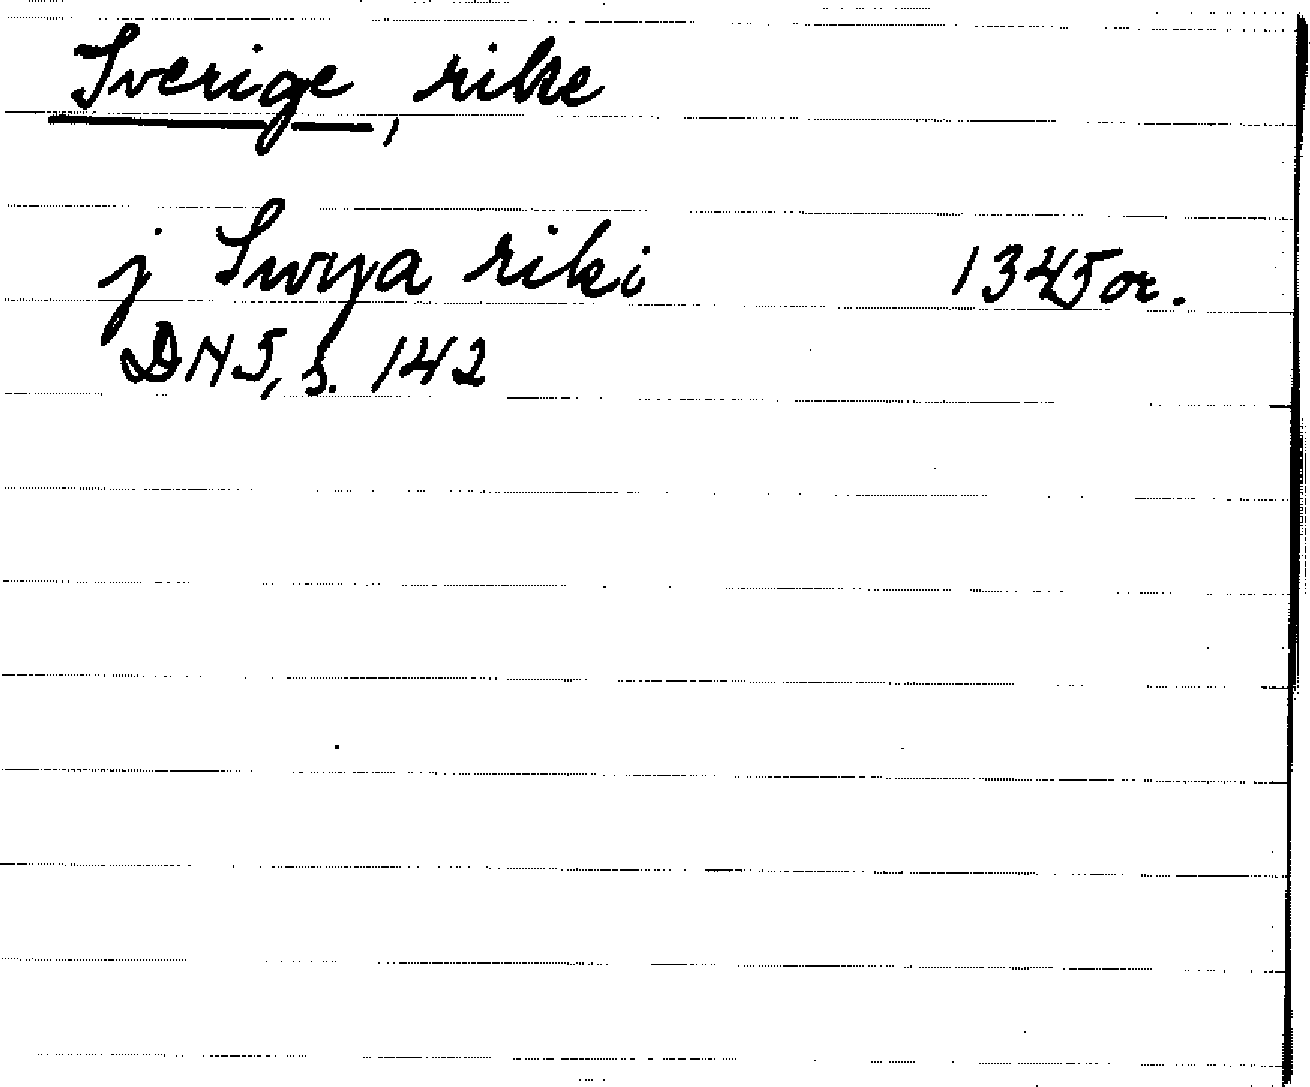 Sverige, rike
j Swya riki 1345 or.
DN5, s. 142